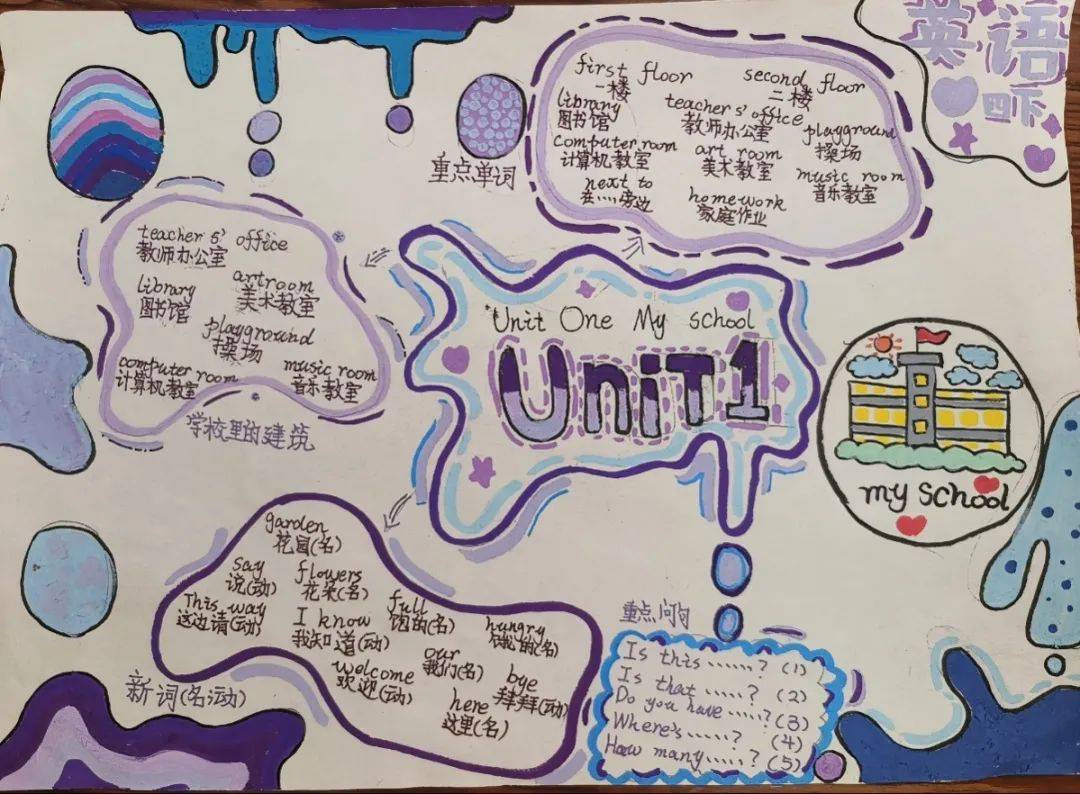 英语
四下
重点单词
first floor
一楼
second floor
二楼
library
图书馆
teachers' office
教师办公室
playground
操场
computer room
计算机教室
art room
美术教室
music room
音乐教室
next to
在……旁边
homework
家庭作业
teachers' office
教师办公室
library
图书馆
artroom
美术教室
playground
操场
computer room
计算机教室
music room
音乐教室
学校里的建筑
Unit One My school
UniT1
my school
garden
花园(名)
say
说(动)
flowers
花朵(名)
This way
这边请(动)
I know
我知道(动)
full
饱的(名)
hungry
饿的(名)
our
我们(名)
welcome
欢迎(动)
bye
拜拜(动)
here
这里(名)
新词(名;动)
重点问句
Is this ......? (1)
Is that ......? (2)
Do you have ......? (3)
Where's ......? (4)
How many......? (5)